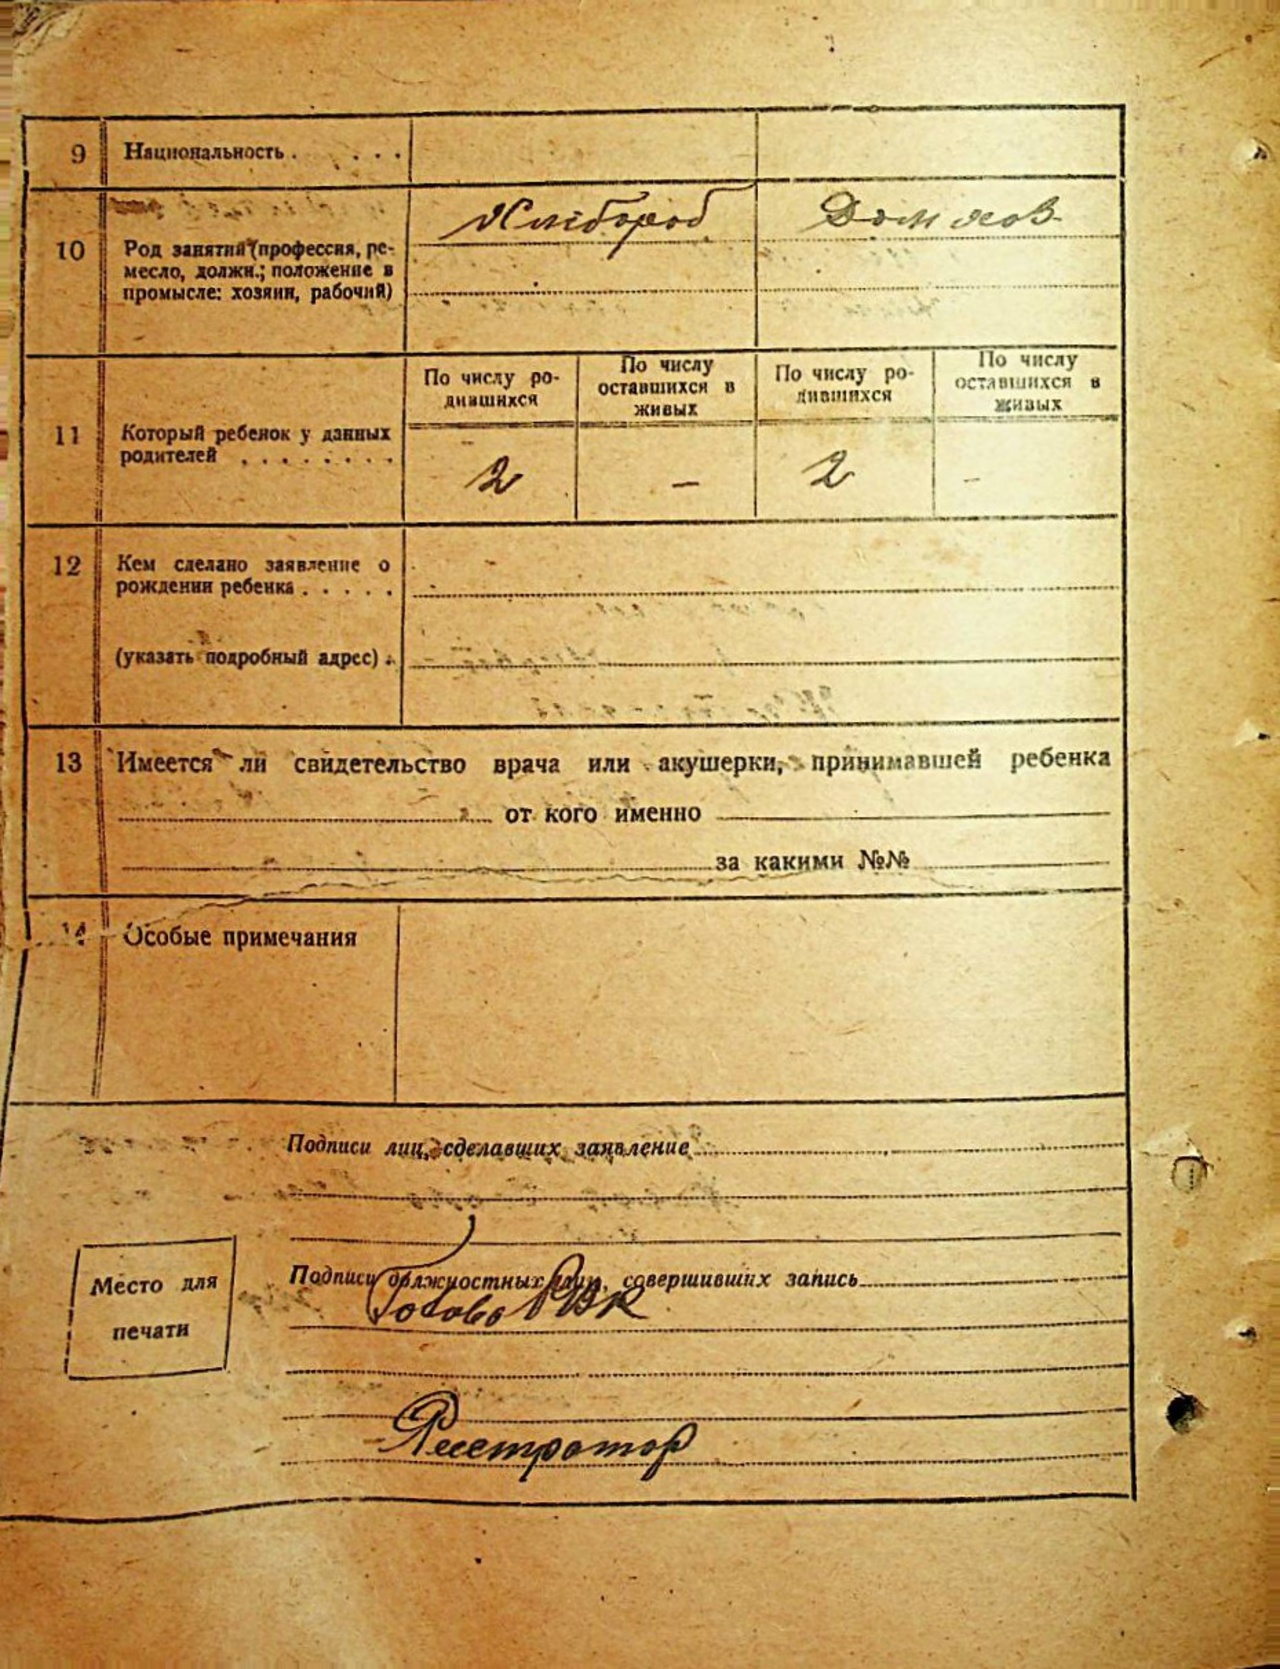 9 Национальность . . . .
Хлебороб Дом хоз
10 Род занятий (профессия, ре-
месло, должн.; положение в
промысле: хозяин, рабочий)
По числу ро-
дившихся
По числу
оставшихся в
живых
По числу ро-
дившихся
По числу
оставшихся в
живых
11 Который ребенок у данных
родителей . . . . . . . .
2 – 2 -
12 Кем сделано заявление о
рождении ребенка . . . . .
(указать подробный адрес) .
13 Имеется ли свидетельство врача или акушерки, принимавшей ребенка
от кого именно
за какими №№
14 Особые примечания
Подписи лиц, сделавших заявление
Подписи должностных лиц, совершивших запись
Голова
Место для
печати
Реестратор